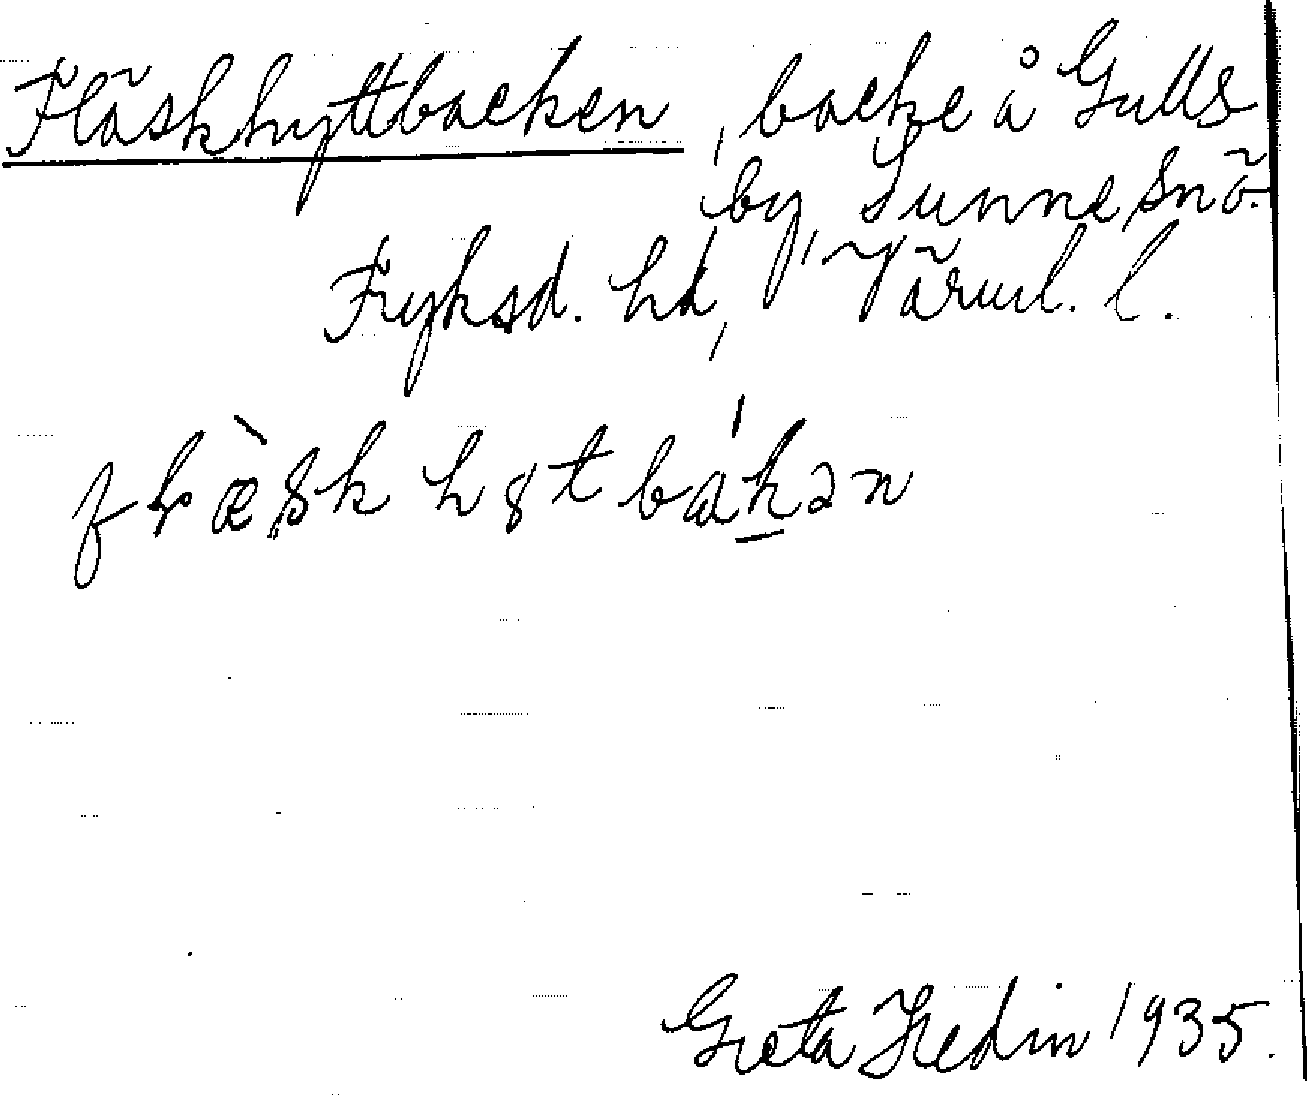 Fläskhyttbacken, backe å Gulls
by, Sunne sn ö.
Fryksd. hd, Värml. l.
fɫæ̀sk hytbákən
Greta Hedin 1935.